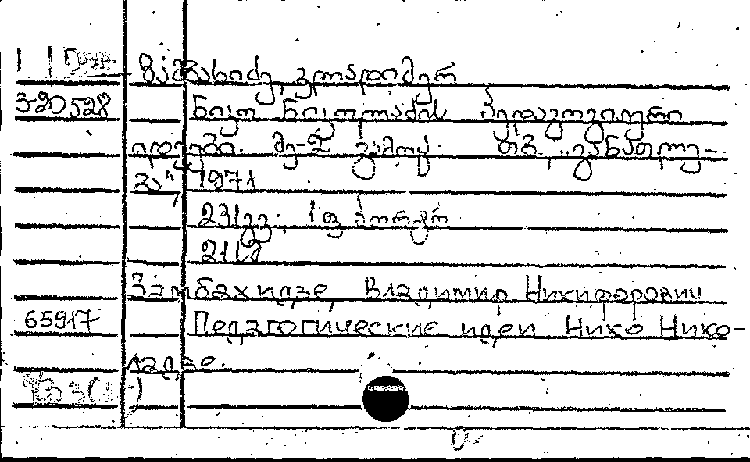 ზამბახიძე, ვლადიმერ
320528 ნიკო ნიკოლაძის პედაგოგიური
იდეები. მე-2 გამოც. თბ., „განათლე-
ბა“, 1971
231 გვ.; 1 ფ. პორტრ.
21 სმ
Замбахидзе, Владимир Никифорович
65917 Педагогические идеи Нико Нико-
ладзе.